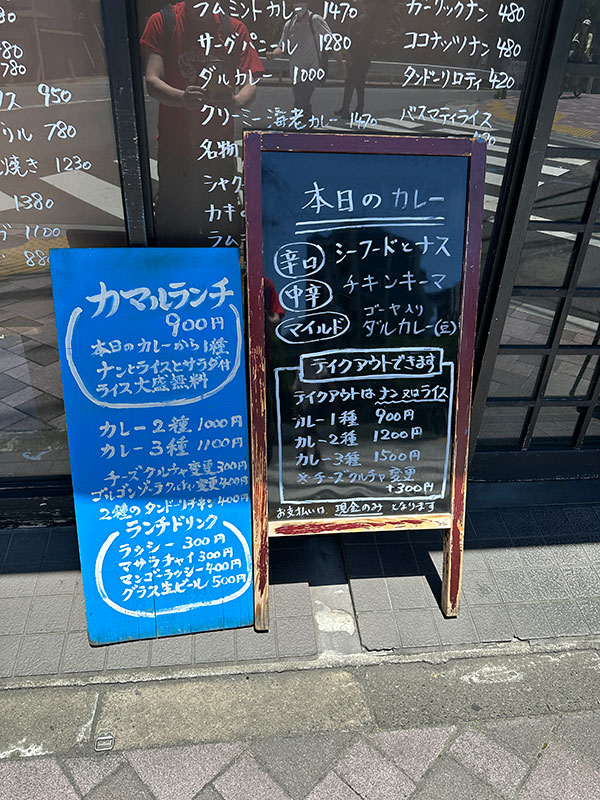 80
780
ス 950
リル 780
ん焼き 1230
1380
1100
880
ラムミントカレー 1470
サーグパニール 1280
ダルカレー 1000
クリーミー海老カレー 1470
名物
シャク
カキ
ラム
ガーリックナン 480
ココナッツナン 480
タンドーリロティ 420
バスマティライス
カマルランチ
900円
本日のカレーから1種
ナンとライスとサラダ付
ライス大盛無料
カレー2種 1000円
カレー3種 1100円
チーズクルチャ変更 300円
ゴルゴンゾーラクルチャ変更 400円
2種のタンドーリチキン 400円
ランチドリンク
ラッシー 300円
マサラチャイ 300円
マンゴーラッシー 400円
グラス生ビール 500円
本日のカレー
辛口 シーフードとナス
中辛 チキンキーマ
ゴーヤ入り
マイルド ダルカレー(豆)
テイクアウトできます
テイクアウトは ナン又はライス
カレー1種 900円
カレー2種 1200円
カレー3種 1500円
※チーズクルチャ変更
+300円
お支払いは 現金のみ となります